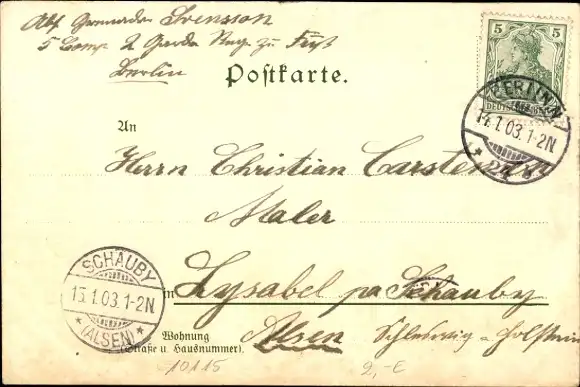 Abs. Grenadier Svensson
5 Comp 2 Garde Reg. zu Fuß
Berlin
Postkarte.
5
DEUTSCHES REICH
BERLIN N
14.1.03.1-2N.
* 24 *
An
Herrn Christian Carstensen
Maler
in Lysabel pr Schauby
Alsen Schleswig Holstein
SCHAUBY
15.1.03 1-2N
* (ALSEN) *
Wohnung
(Straße u. Hausnummer).
10115
2,-E